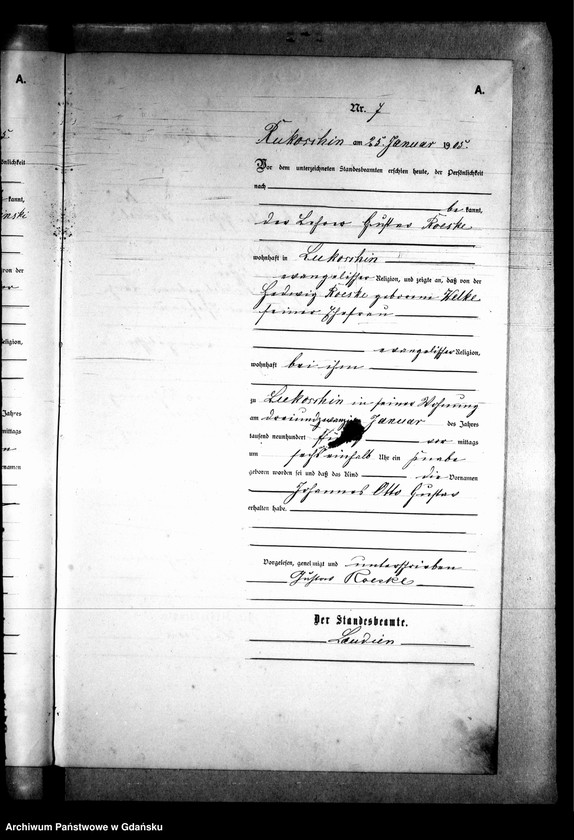 A.
A.
Nr. 7
Rukoschin am 25. Januar 1905.
Vor dem unterzeichneten Standesbeamten erschien heute, der Persönlichkeit
nach
be kannt,
der Lehrer Gustav Roeske
wohnhaft in Lukoschin
evangelischer Religion, und zeigte an, daß von der
Hedwig Roeske geborenen Welke
seiner Ehefrau
evangelischer Religion,
wohnhaft bei ihm
zu Lukoschin in seiner Wohnung
am dreiundzwanzig Januar des Jahres
tausend neunhundert vor mittags
um sechs einhalb Uhr ein Knabe
geboren worden sei und daß das Kind die Vornamen
Johannes Otto Gustav
erhalten habe.
Vorgelesen, genehmigt und unterschrieben
Gustav Roeske
Der Standesbeamte.
Laudien
Archiwum Państwowe w Gdańsku